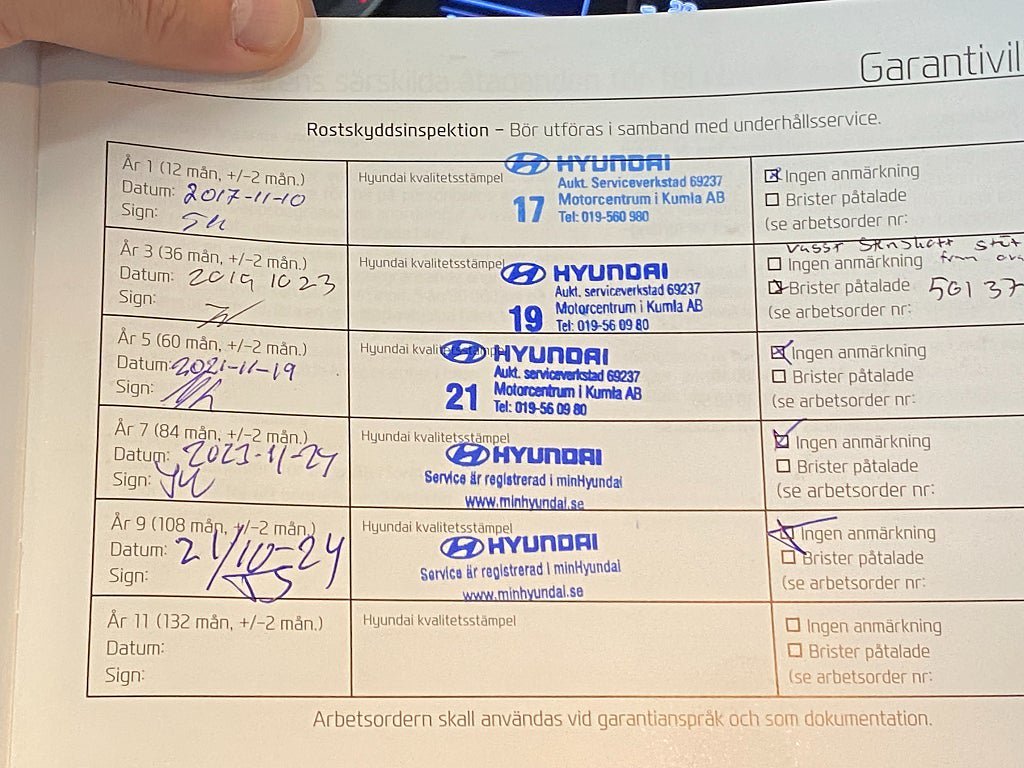 Garantivil
Rostskyddsinspektion – Bör utföras i samband med underhållsservice.
År 1 (12 mån, +/–2 mån.)
Datum: 2017-11-10
Sign:
Hyundai kvalitetsstämpel
HYUNDAI
Aukt. Serviceverkstad 69237
17 Motorcentrum i Kumla AB
Tel: 019-560 980
Ingen anmärkning
Brister påtalade
(se arbetsorder nr:
År 3 (36 mån, +/–2 mån.)
Datum: 2019 10 23
Sign:
Hyundai kvalitetsstämpel
HYUNDAI
Aukt. serviceverkstad 69237
19 Motorcentrum i Kumla AB
Tel: 019-56 09 80
Ingen anmärkning från
Brister påtalade 501 37
(se arbetsorder nr:
År 5 (60 mån, +/–2 mån.)
Datum: 2021-11-19
Sign:
Hyundai kvalitetsstämpel
HYUNDAI
Aukt. serviceverkstad 69237
21 Motorcentrum i Kumla AB
Tel: 019-56 09 80
Ingen anmärkning
Brister påtalade
(se arbetsorder nr:
År 7 (84 mån, +/–2 mån.)
Datum: 2023-11-27
Sign:
Hyundai kvalitetsstämpel
HYUNDAI
Service är registrerad i minHyundai
www.minhyundai.se
Ingen anmärkning
Brister påtalade
(se arbetsorder nr:
År 9 (108 mån, +/–2 mån.)
Datum: 21/10-24
Sign: TS
Hyundai kvalitetsstämpel
HYUNDAI
Service är registrerad i minHyundai
www.minhyundai.se
Ingen anmärkning
Brister påtalade
(se arbetsorder nr:
År 11 (132 mån, +/–2 mån.)
Datum:
Sign:
Hyundai kvalitetsstämpel
Ingen anmärkning
Brister påtalade
(se arbetsorder nr:
Arbetsordern skall användas vid garantianspråk och som dokumentation.